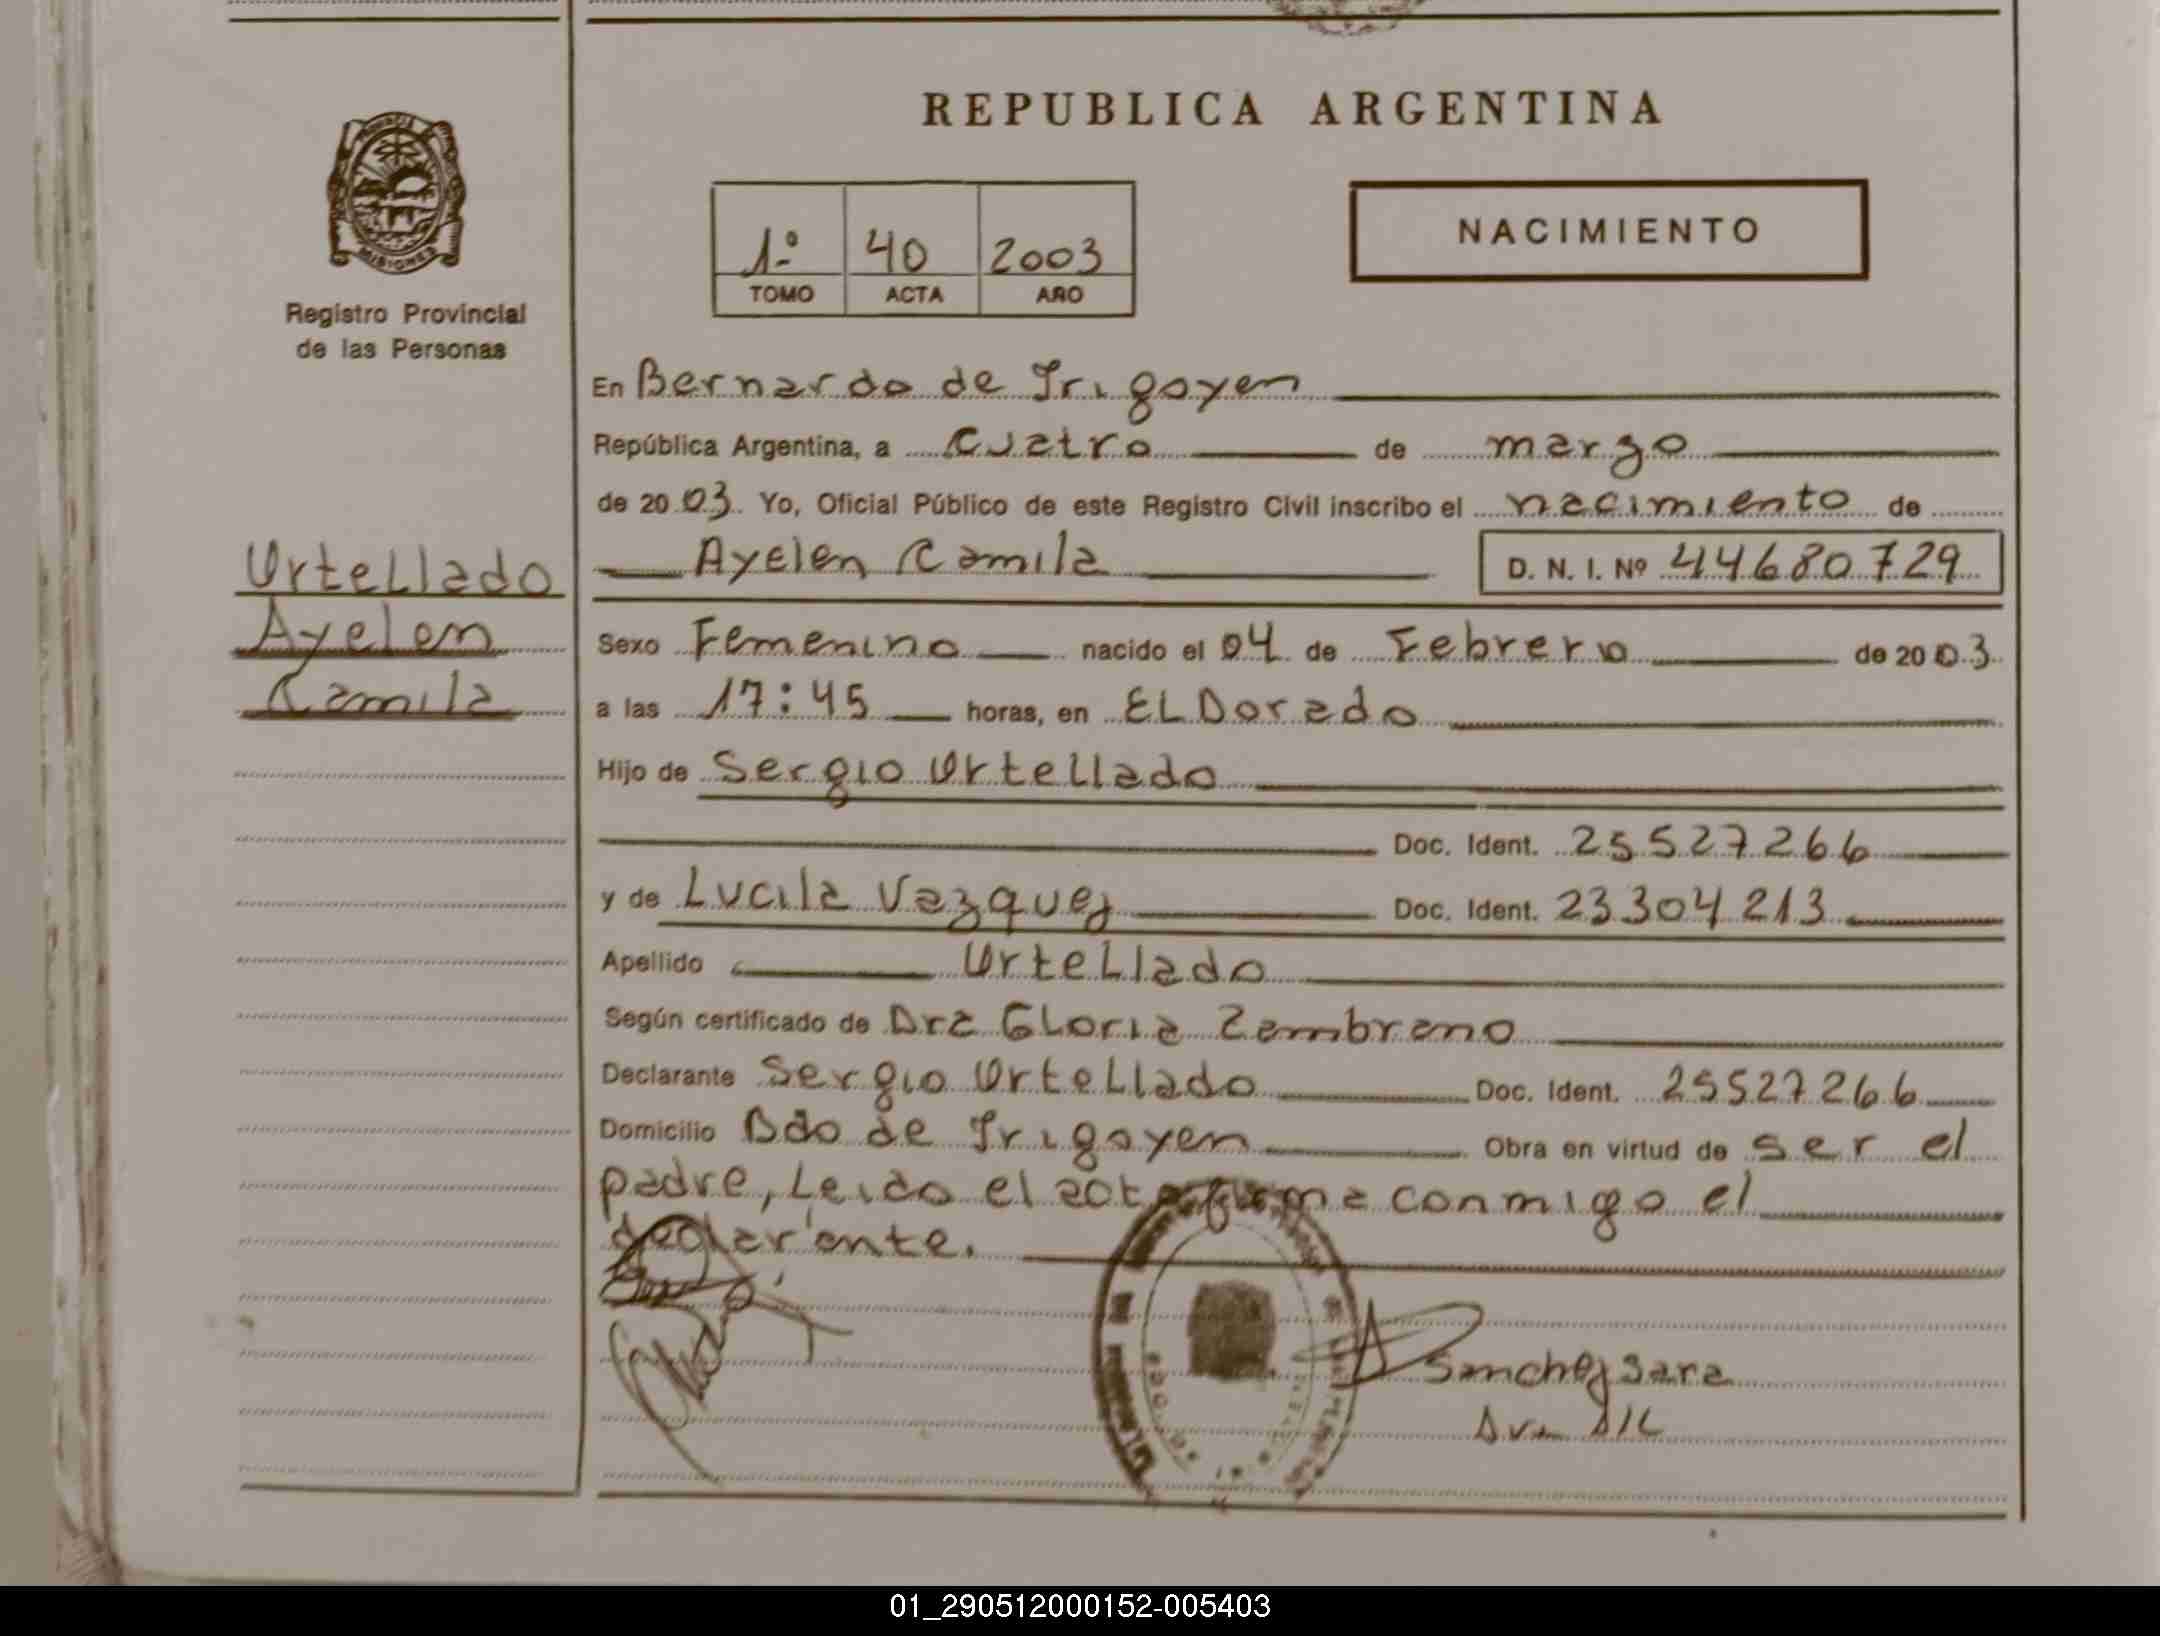 REPUBLICA ARGENTINA
MISIONES
Registro Provincial
de las Personas
1º 40 2003
TOMO ACTA AÑO
NACIMIENTO
En Bernardo de Irigoyen
República Argentina, a cuatro de marzo
de 2003. Yo, Oficial Público de este Registro Civil inscribo el nacimiento de
Ayelen Camila D. N. I. Nº 44680729
Urtellado
Ayelen
Camila
Sexo Femenino nacido el 04 de Febrero de 2003
a las 17:45 horas, en ELDorado
Hijo de Sergio Urtellado
Doc. Ident. 25527266
y de Lucila Vazquez Doc. Ident. 23304213
Apellido Urtellado
Según certificado de Dra Gloria Zambrano
Declarante Sergio Urtellado Doc. Ident. 25527266
Domicilio Bdo de Irigoyen Obra en virtud de ser el
padre, Leido el acta firma conmigo el
declarante.
Sanchez Sara
01_290512000152-005403